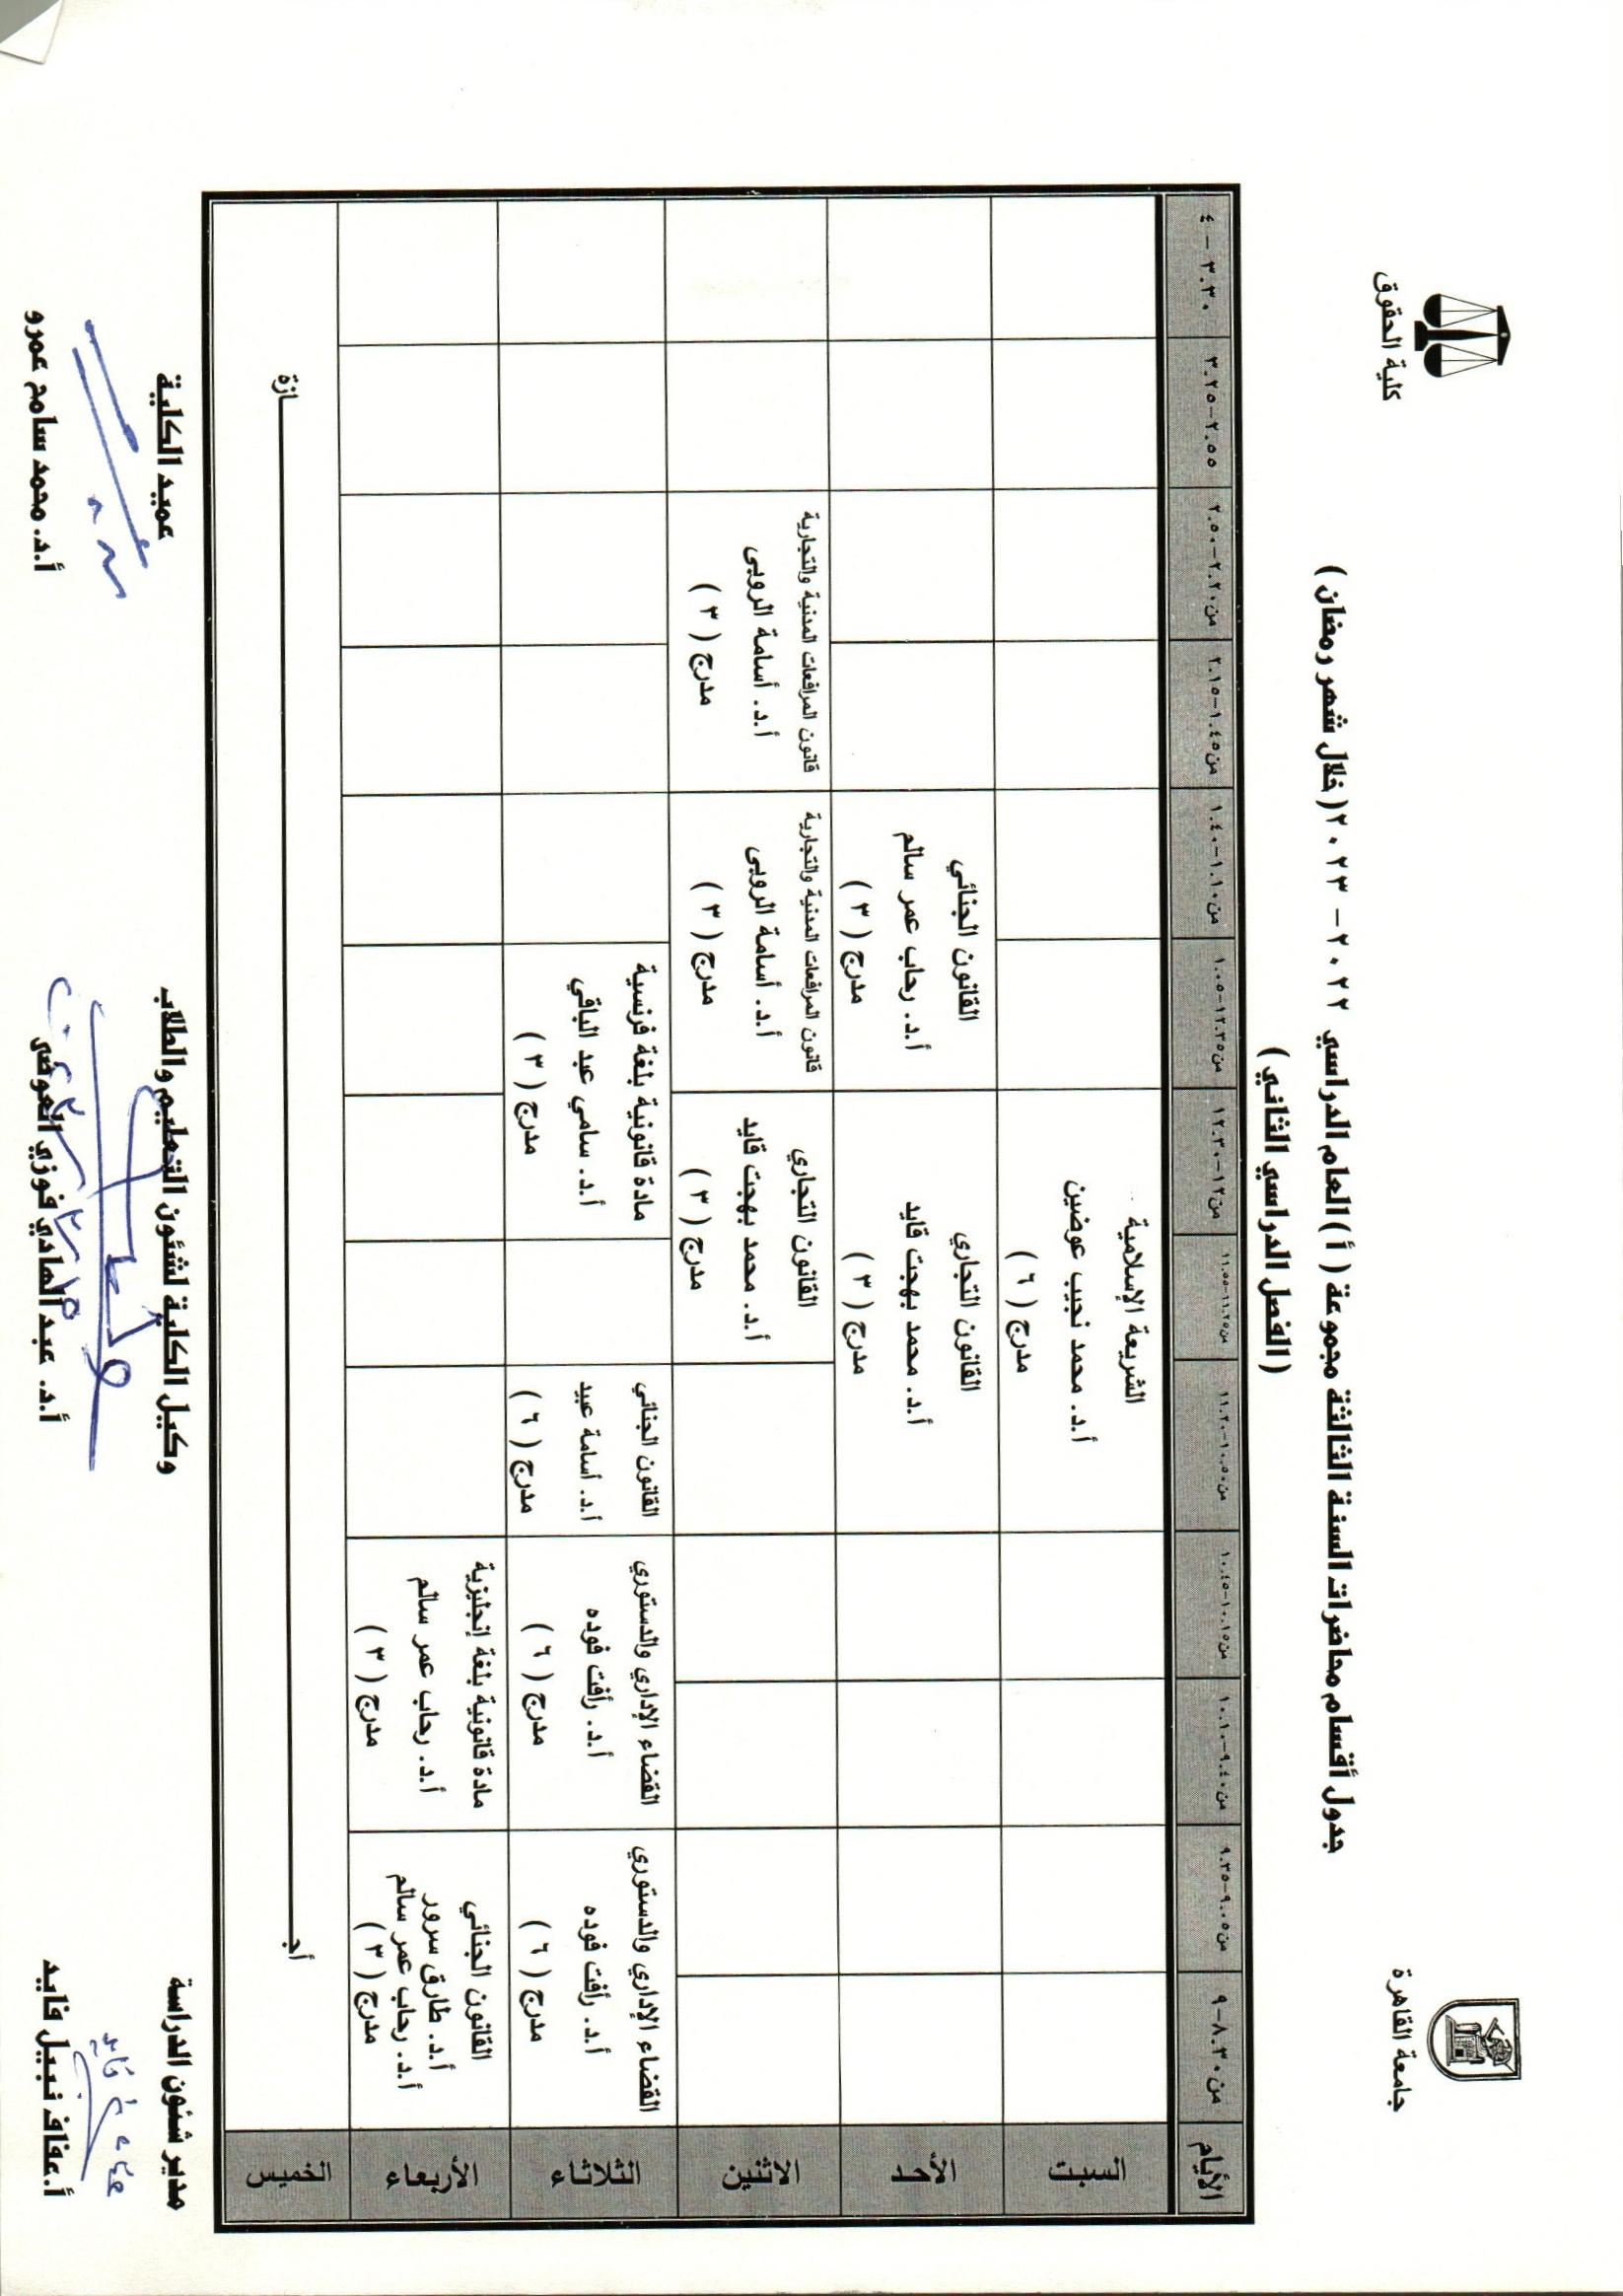 جامعة القاهرة
كلية الحقوق
جدول أقسام محاضرات السنة الثالثة مجموعة ( أ ) العام الدراسي ٢٠٢٢ – ٢٠٢٣ ( خلال شهر رمضان )
( الفصل الدراسي الثاني )
الأيام
من ٨.٣٠-٩
من ٩.٠٥-٩.٣٥
من ٩.٤٠-١٠.١٠
من ١٠.١٥-١٠.٤٥
من ١٠.٥٠-١١.٢٠
من ١١.٢٥-١١.٥٥
من ١٢-١٢.٣٠
من ١٢.٣٥-١.٠٥
من ١.١٠-١.٤٠
من ١.٤٥-٢.١٥
من ٢.٢٠-٢.٥٠
٢.٥٥-٣.٢٥
٣.٣٠ – ٤
السبت
الشريعة الإسلامية
أ.د. محمد نجيب عوضين
مدرج ( ٦ )
الأحد
القانون التجاري
أ.د. محمد بهجت قايد
مدرج ( ٣ )
القانون الجنائي
أ.د. رحاب عمر سالم
مدرج ( ٣ )
الاثنين
القانون التجاري
أ.د. محمد بهجت قايد
مدرج ( ٣ )
قانون المرافعات المدنية والتجارية
أ.د. أسامة الروبى
مدرج ( ٣ )
قانون المرافعات المدنية والتجارية
أ.د. أسامة الروبى
مدرج ( ٣ )
الثلاثاء
القضاء الإداري والدستوري
أ.د. رأفت فوده
مدرج ( ٦ )
القضاء الإداري والدستوري
أ.د. رأفت فوده
مدرج ( ٦ )
القانون الجنائي
أ.د. أسامة عبيد
مدرج ( ٦ )
مادة قانونية بلغة فرنسية
أ.د. سامي عبد الباقي
مدرج ( ٣ )
الأربعاء
القانون الجنائي
أ.د. طارق سرور
أ.د. رحاب عمر سالم
مدرج ( ٣ )
مادة قانونية بلغة إنجليزية
أ.د. رحاب عمر سالم
مدرج ( ٣ )
الخميس
أجـــازة
مدير شئون الدراسة
أ.عفاف نبيل فايد
وكيل الكلية لشئون التعليم والطلاب
أ.د. عبد الهادي فوزي العوضي
عميد الكلية
أ.د. محمد سامح عمرو